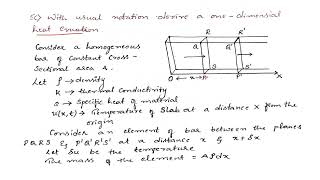 5c) With usual notation derive a one-dimensional
heat equation
Consider a homogeneous
bar of constant cross-
sectional area A.
Let ρ → density
k → thermal conductivity
σ → specific heat of material
u(x,t) → Temperature of slab at a distance x from the
origin
Consider an element of bar between the planes
PQRS & P'Q'R'S' at a distance x & x+δx
Let δu be the temperature
The mass of the element = Aρdx
R
R'
Q
Q'
S
S'
O
x
P
P'
X